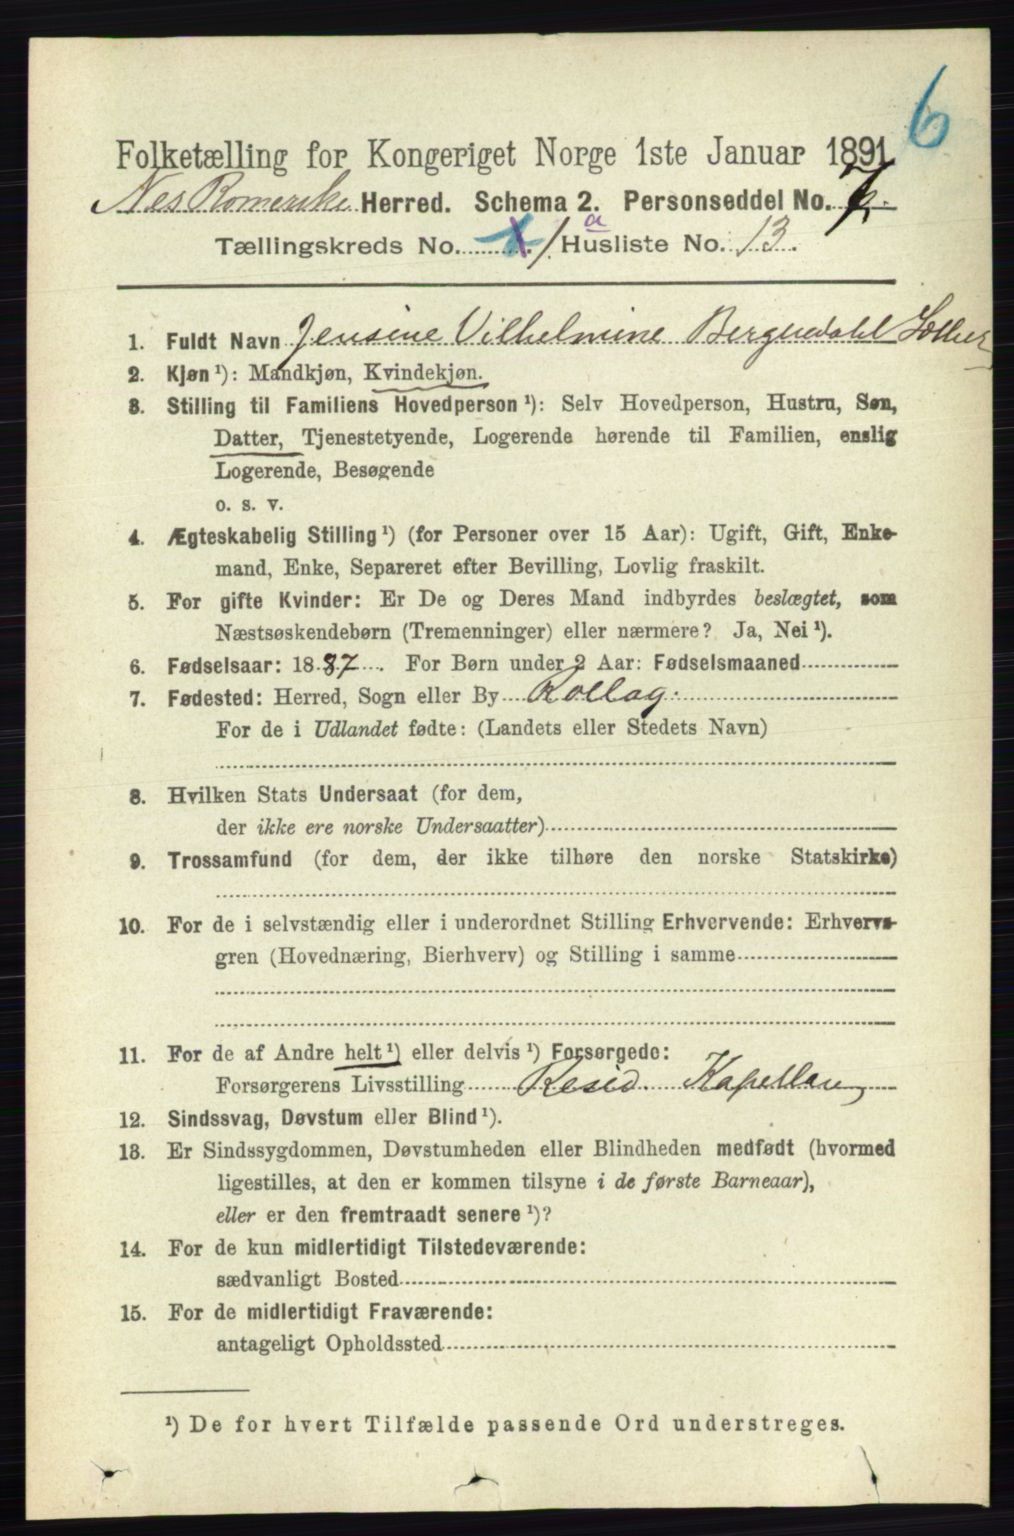 6
Folketælling for Kongeriget Norge 1ste Januar 1891.
Nes Romerike Herred. Schema 2. Personseddel No.
Tællingskreds No. 1 a Husliste No. 13.
1. Fuldt Navn Jensine Vilhelmine
2. Kjøn ¹): Mandkjøn, Kvindekjøn.
3. Stilling til Familiens Hovedperson ¹): Selv Hovedperson, Hustru, Søn,
Datter, Tjenestetyende, Logerende hørende til Familien, enslig
Logerende, Besøgende
o. s. v.
4. Ægteskabelig Stilling ¹) (for Personer over 15 Aar): Ugift, Gift, Enke-
mand, Enke, Separeret efter Bevilling, Lovlig fraskilt.
5. For gifte Kvinder: Er De og Deres Mand indbyrdes beslægtet, som
Næstsøskendebørn (Tremenninger) eller nærmere? Ja, Nei ¹).
6. Fødselsaar: 1887. For Børn under 2 Aar: Fødselsmaaned
7. Fødested: Herred, Sogn eller By Rollag.
For de i Udlandet fødte: (Landets eller Stedets Navn)
8. Hvilken Stats Undersaat (for dem,
der ikke ere norske Undersaatter)
9. Trossamfund (for dem, der ikke tilhøre den norske Statskirke)
10. For de i selvstændig eller i underordnet Stilling Erhvervende: Erhvervs-
gren (Hovednæring, Bierhverv) og Stilling i samme
11. For de af Andre helt ¹) eller delvis ¹) Forsørgede:
Forsørgerens Livsstilling Resid. Kapellan
12. Sindssvag, Døvstum eller Blind ¹).
13. Er Sindssygdommen, Døvstumheden eller Blindheden medfødt (hvormed
ligestilles, at den er kommen tilsyne i de første Barneaar),
eller er den fremtraadt senere ¹)?
14. For de kun midlertidigt Tilstedeværende:
sædvanligt Bosted
15. For de midlertidigt Fraværende:
antageligt Opholdssted
¹) De for hvert Tilfælde passende Ord understreges.